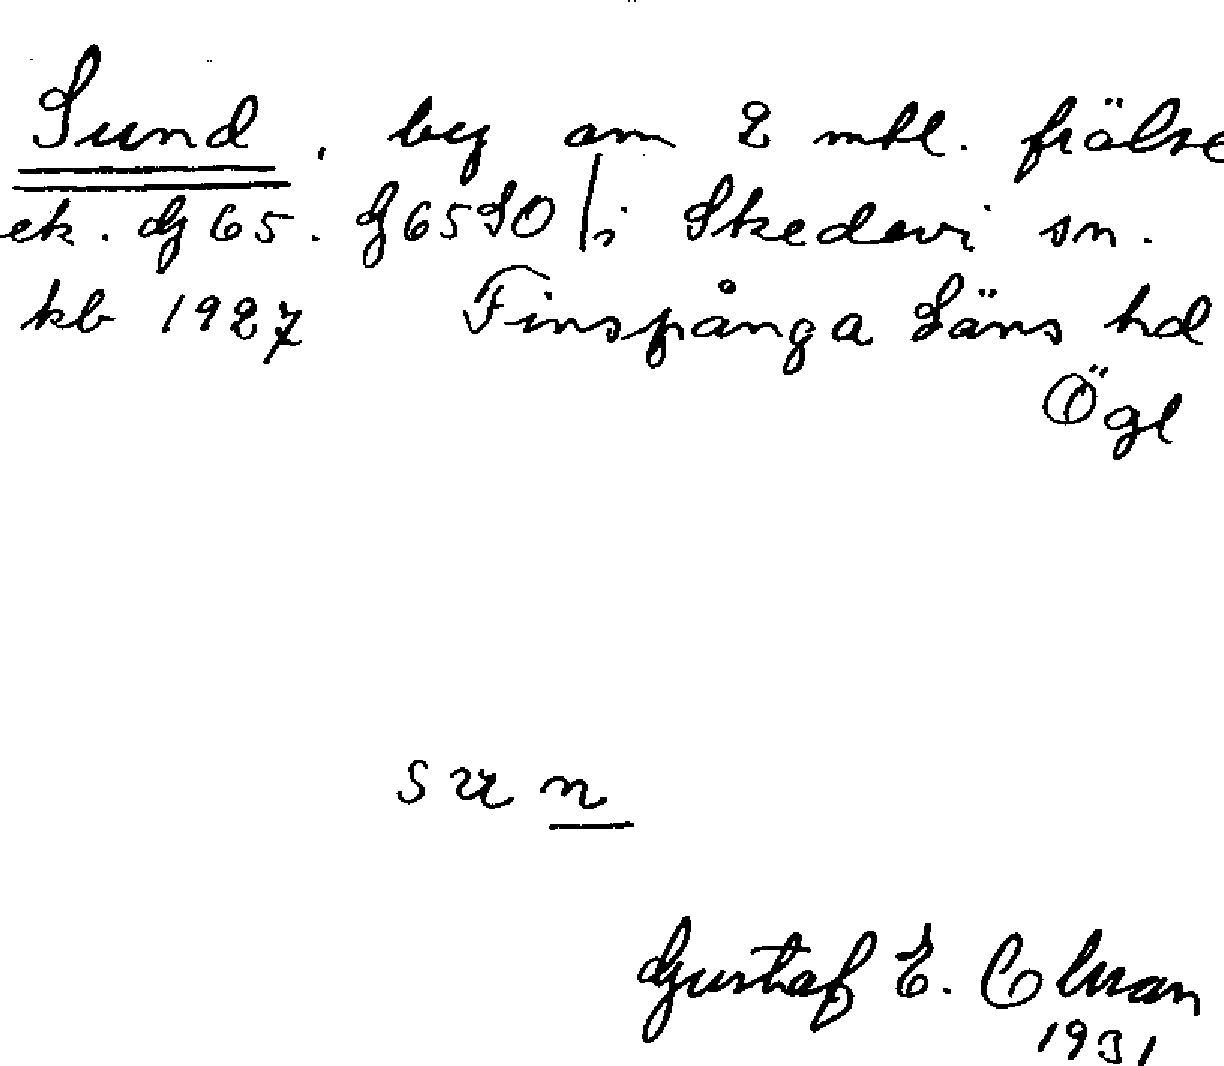 Sund, by om 2 mtl. frälse
ek. G65. G65SO | i Skedevi sn.
kb 1927 Finspånga Läns hd
Ögl
sun
Gustaf E.
1931